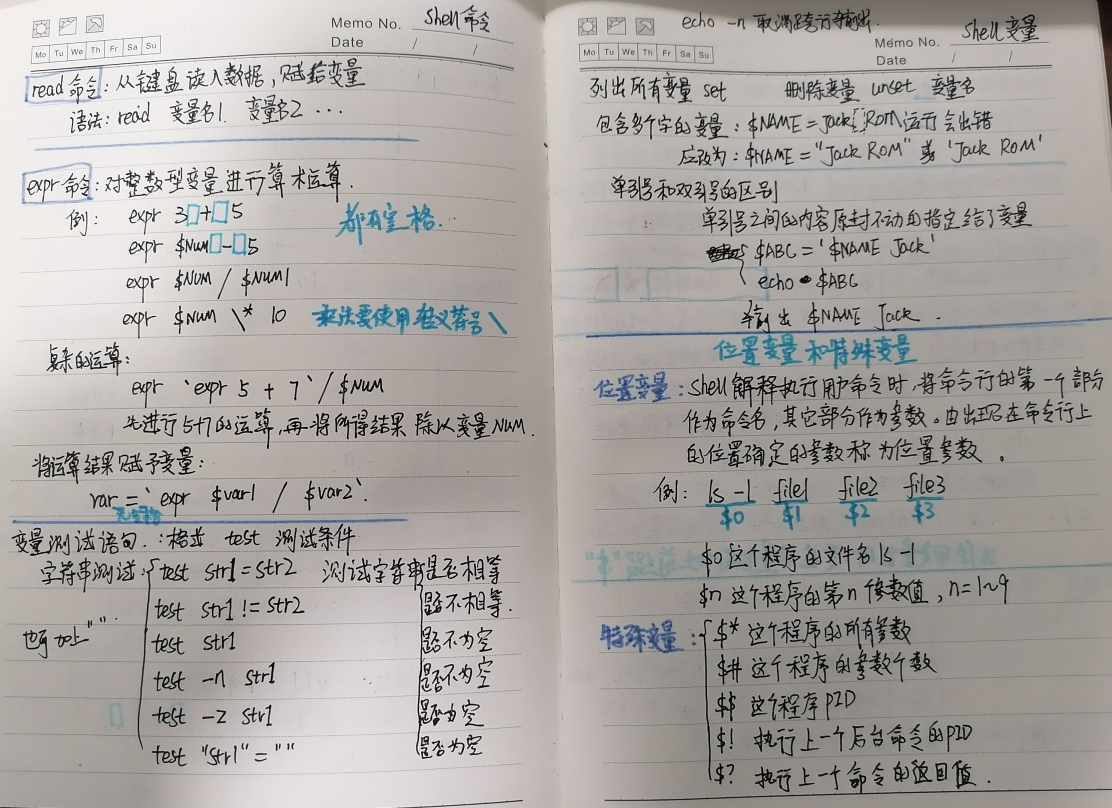 Memo No. Shell 命令
Mo Tu We Th Fr Sa Su
Date / /
read 命令：从键盘读入数据，赋给变量
语法：read 变量名1 变量名2 ···
expr 命令：对整数型变量进行算术运算.
例： expr 3□+□5
都有空格.
expr $NUM□-□5
expr $NUM / $NUM1
expr $NUM \* 10 乘法要使用转义符号\
复杂的运算：
expr `expr 5 + 7` / $NUM
先进行5+7的运算，再将所得结果除以变量NUM.
将运算结果赋予变量：
var = `expr $var1 / $var2`.
无空格
变量测试语句.：格式 test 测试条件
字符串测试：test str1=str2 测试字符串是否相等
test str1 != str2 是否不相等.
也可加上" ".
test str1 是否不为空
test -n str1 是否不为空
test -z str1 是否为空
test "str1" = "" 是否为空
echo -n 取消跨行输出.
Memo No. Shell 变量
Mo Tu We Th Fr Sa Su
Date / /
列出所有变量 set 删除变量 unset 变量名
包含多个字的变量：$NAME=Jack ROM 运行会出错
应改为：$NAME="Jack ROM" 或 'Jack ROM'
单引号和双引号的区别
单引号之间的内容原封不动的指定给了变量
$ABC='$NAME Jack'
echo $ABC
输出 $NAME Jack .
位置变量和特殊变量
位置变量：Shell解释执行用户命令时，将命令行的第一个部分
作为命令名，其它部分作为参数。由出现在命令行上
的位置确定的参数称为位置参数 。
例： ls -l file1 file2 file3
$0 $1 $2 $3
$0 这个程序的文件名 ls -l
$n 这个程序的第n个参数值，n=1~9
特殊变量：$* 这个程序的所有参数
$# 这个程序的参数个数
$$ 这个程序PID
$! 执行上一个后台命令的PID
$? 执行上一个命令的返回值.